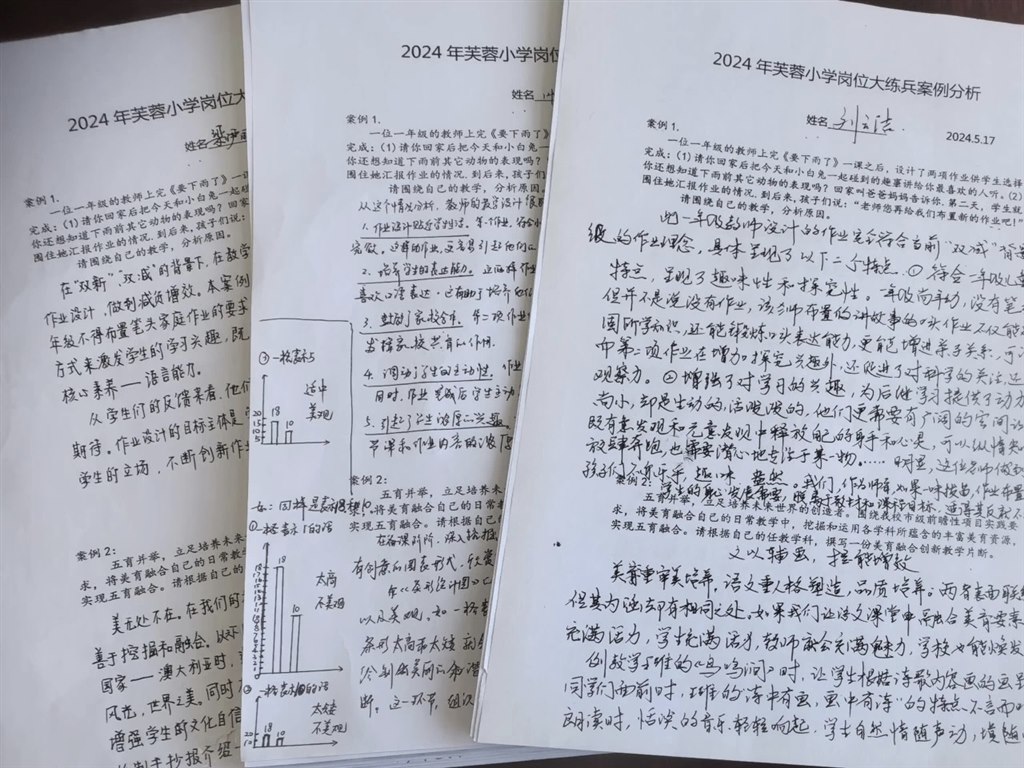 2024 年芙蓉小学岗位大
姓名
案例 1.
一位一年级的教师上完《要下雨了》
完成：(1) 请你回家后把今天和小白兔一起碰
你还想知道下雨前其它动物的表现吗？回
围住她汇报作业的情况，到后来，孩子们说：
请围绕自己的教学，分析原因。
在"双新""双减"的背景下，在教学
作业设计，做到减负增效。本案例
年级不得布置笔头家庭作业的要求
方式来激发学生的学习兴趣，既
核心素养——语言能力。
从学生们的反馈来看，他们
期待。作业设计的目标主体是
学生的立场，不断创新作业
案例 2：
五育并举，立足培养未
求，将美育融合自己的日常教
实现五育融合。请根据自己
美无处不在。在我们的
善于挖掘和融合。以
国家——澳大利亚时，
风光，世界之美。同时
增强学生的文化自信
制手抄报介绍
2024 年芙蓉小学岗位
姓名
案例 1.
一位一年级的教师上完《要下雨了》
完成：(1) 请你回家后把今天和小白兔
你还想知道下雨前其它动物的表现吗？
围住她汇报作业的情况，到后来，孩子们
请围绕自己的教学，分析原因。
从这个情况分析，教师的教学设计很
1. 作业设计贴近学生生活。第一个作业，
2. 培养学生的表达能力。
喜欢口语表达，这有助于培养他们
3. 鼓励了家校合作。第二项作业
发挥家校共育的作用。
4. 调动了学生的主动性。作业
同时，作业完成后学生主动
5. 引起了学生浓厚的兴趣。
节课和作业内容的浓厚
③ 一格表示5
适中
美观
20
15
10
5
18
10
案例 2：
五育并举，立足培养未
求，将美育融合自己的日常教
实现五育融合。请根据自己的
在备课阶段，深入挖掘
有创意的图表形式，欣赏
在《条形统计图》
以及美观，如一格表
条形太高而太矮
断。这一环节，组
① 一格表示1的话
太高
不美观
18
10
一格表示10的话
太矮
不美观
20
10
18
10
2024 年芙蓉小学岗位大练兵案例分析
姓名 刘云洁
2024.5.17
案例 1.
一位一年级的教师上完《要下雨了》一课之后，设计了两项作业供学生选择
完成：(1) 请你回家后把今天和小白兔一起碰到的趣事讲给你最喜欢的人听。(2)
你还想知道下雨前其它动物的表现吗？回家叫爸爸妈妈告诉你。第二天，学生就
围住她汇报作业的情况，到后来，孩子们说："老师您再给我们布置新的作业吧！"
请围绕自己的教学，分析原因。
此一年级教师设计的作业完全符合当前"双减"背景
级的作业理念，具体呈现了以下二个特点。① 符合一年级
特点，呈现了趣味性和探究性。一年级尚年幼，没有笔
但并不是说没有作业，该老师布置的讲故事的口头作业不仅能
固所学知识，还能锻炼口头表达能力，更能增进亲子关系，可
中第二项作业在增加了探究兴趣外，还促进了对科学的关注，还
观察力。② 增强了对学习的兴趣，为后继学习提供了动力
尚小，却是生动的，活泼泼的，他们更需要有广阔的空间
既有意发现和无意发现中释放自己的身手和心灵，可以纵情
放肆奔跑，也需要潜心地专注于某一物。……明显，这位老师做到
孩子们不亦乐乎，趣味盎然。我们，作为师者，如果一味拔苗，作业布置
案例 2：
五育并举，立足培养未来世界的创造者。围绕我校市级前瞻性项目实践要
求，将美育融合自己的日常教学中，挖掘和运用各学科所蕴含的丰富美育资源，
实现五育融合。请根据自己的任教学科，撰写一份美育融合创新教学片断。
文以辅画，提能增效
美育重审美培养，语文重人格塑造，品质培养。两者表面联
但其内涵立即有相同之处。如果我们让语文课堂中融合美育要素
充满活力，学生充满活力，教师就会充满魅力，学校也能焕发
例教学王维的《鸟鸣涧》时，让学生根据诗歌内容画的画呈
同学们面前时，王维的"诗中有画，画中有诗"的特点不言而
朗读时，恬淡的音乐轻轻响起，学生自然情随声动，境随